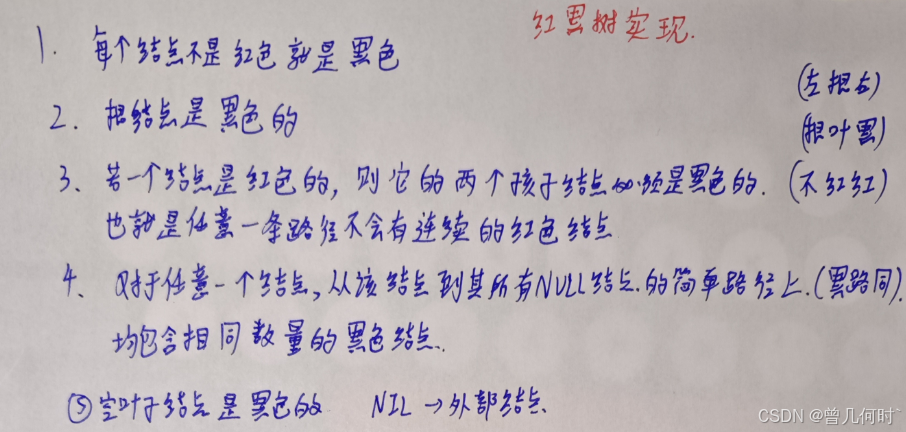 红黑树实现.
1. 每个结点不是红色就是黑色
(左根右)
2. 根结点是黑色的
(根叶黑)
3、若一个结点是红色的,则它的两个孩子结点必须是黑色的. (不红红)
也就是任意一条路径不会有连续的红色结点
4、对于任意一个结点,从该结点到其所有NULL结点.的简单路径上.(黑路同).
均包含相同数量的黑色结点.
⑤空叶子结点是黑色的 NIL→外部结点.
CSDN @曾几何时`